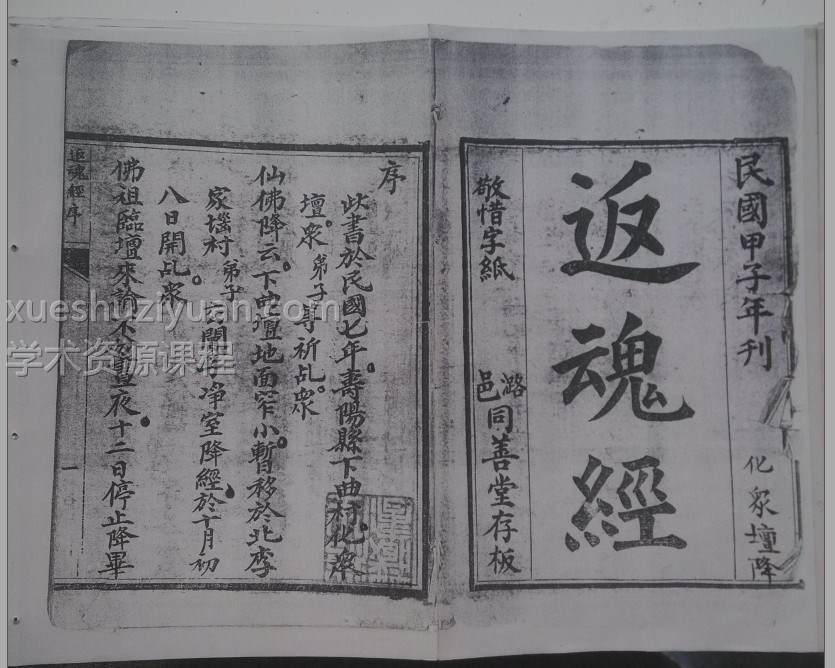 民國甲子年刊
化衆壇降
返魂經
敬惜字紙
潞邑同善堂存板
序
此書於民國七年。壽陽縣下曲村化衆
壇。衆弟子等祈乩。衆
仙佛降云。下曲壇地面窄小。暫移於北李
家墕村弟子
淨室降經。於十月初
八日開乩。衆
佛祖臨壇來諭
夜十二日停止降畢
返魂經序
一
xueshuziyuan.com
学术资源课程